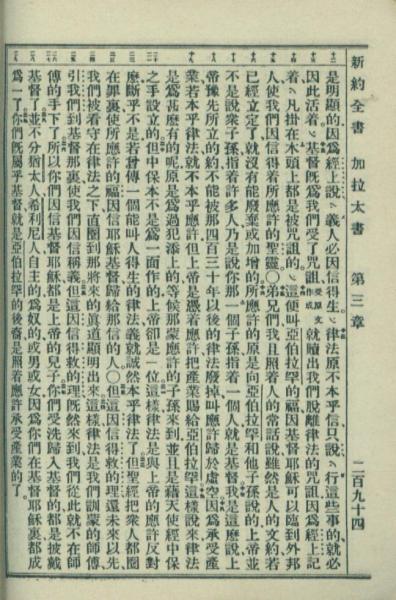 新約全書 加拉太書 第三章 二百九十四
是明顯的因爲經上說義人必因信得生律法原不本乎信只說行這些事的就必
因此活着基督旣爲我們受了咒詛受原文作成就贖出我們脫離律法的咒詛因爲經上記
着凡掛在木頭上都是被咒詛的這便叫亞伯拉罕的福因基督耶穌可以臨到外邦
人使我們因信得着所應許的聖靈○弟兄們我且照着人的常話說雖然是人的文約若
已經立定了就沒有能廢棄或加增的所應許的原是向亞伯拉罕和他子孫說的上帝並
不是說衆子孫指着許多人乃是說你那一個子孫指着一個人就是基督我是這麽說上
帝豫先所立的約不能被那四百三十年以後的律法廢掉叫應許歸於虛空因爲承受產
業若本乎律法就不本乎應許但上帝是憑着應許把產業賜給亞伯拉罕這樣說來律法
是爲甚麽有的呢原是爲過犯添上的等候那蒙應許的子孫來到並且是藉天使經中保
之手設立的但中保本不是爲一面作的上帝卻是一位這樣律法是與上帝的應許反對
麽斷乎不是若曾傳一個能叫人得生的律法義就誠然本乎律法了但聖經把衆人都圈
在罪裏使所應許的福因信耶穌基督歸給那信的人○但這因信得救的理還未來以先
我們被看守在律法之下直圈到那將來的眞道顯明出來這樣律法是我們訓蒙的師傅
引我們到基督那裏使我們因信稱義但這因信得救的理旣然來到我們從此就不在師
傅的手下了所以你們因信基督耶穌都是上帝的兒子你們受洗歸入基督的都是披戴
基督了並不分猶太人希利尼人自主的爲奴的或男或女因爲你們在基督耶穌裏都成
爲一了你們旣屬乎基督就是亞伯拉罕的後裔是照着應許承受產業的了